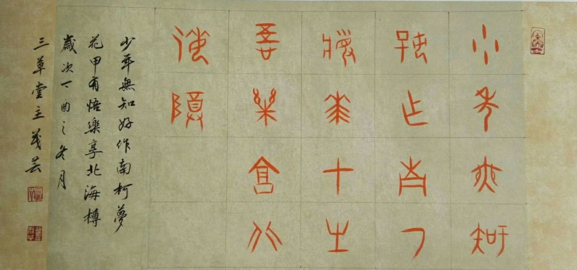 少年無知
好作南柯
夢花甲有
悟樂享北
海樽
少年無知好作南柯夢
花甲有悟樂享北海樽
歲次丁酉之冬月
三草堂主芸